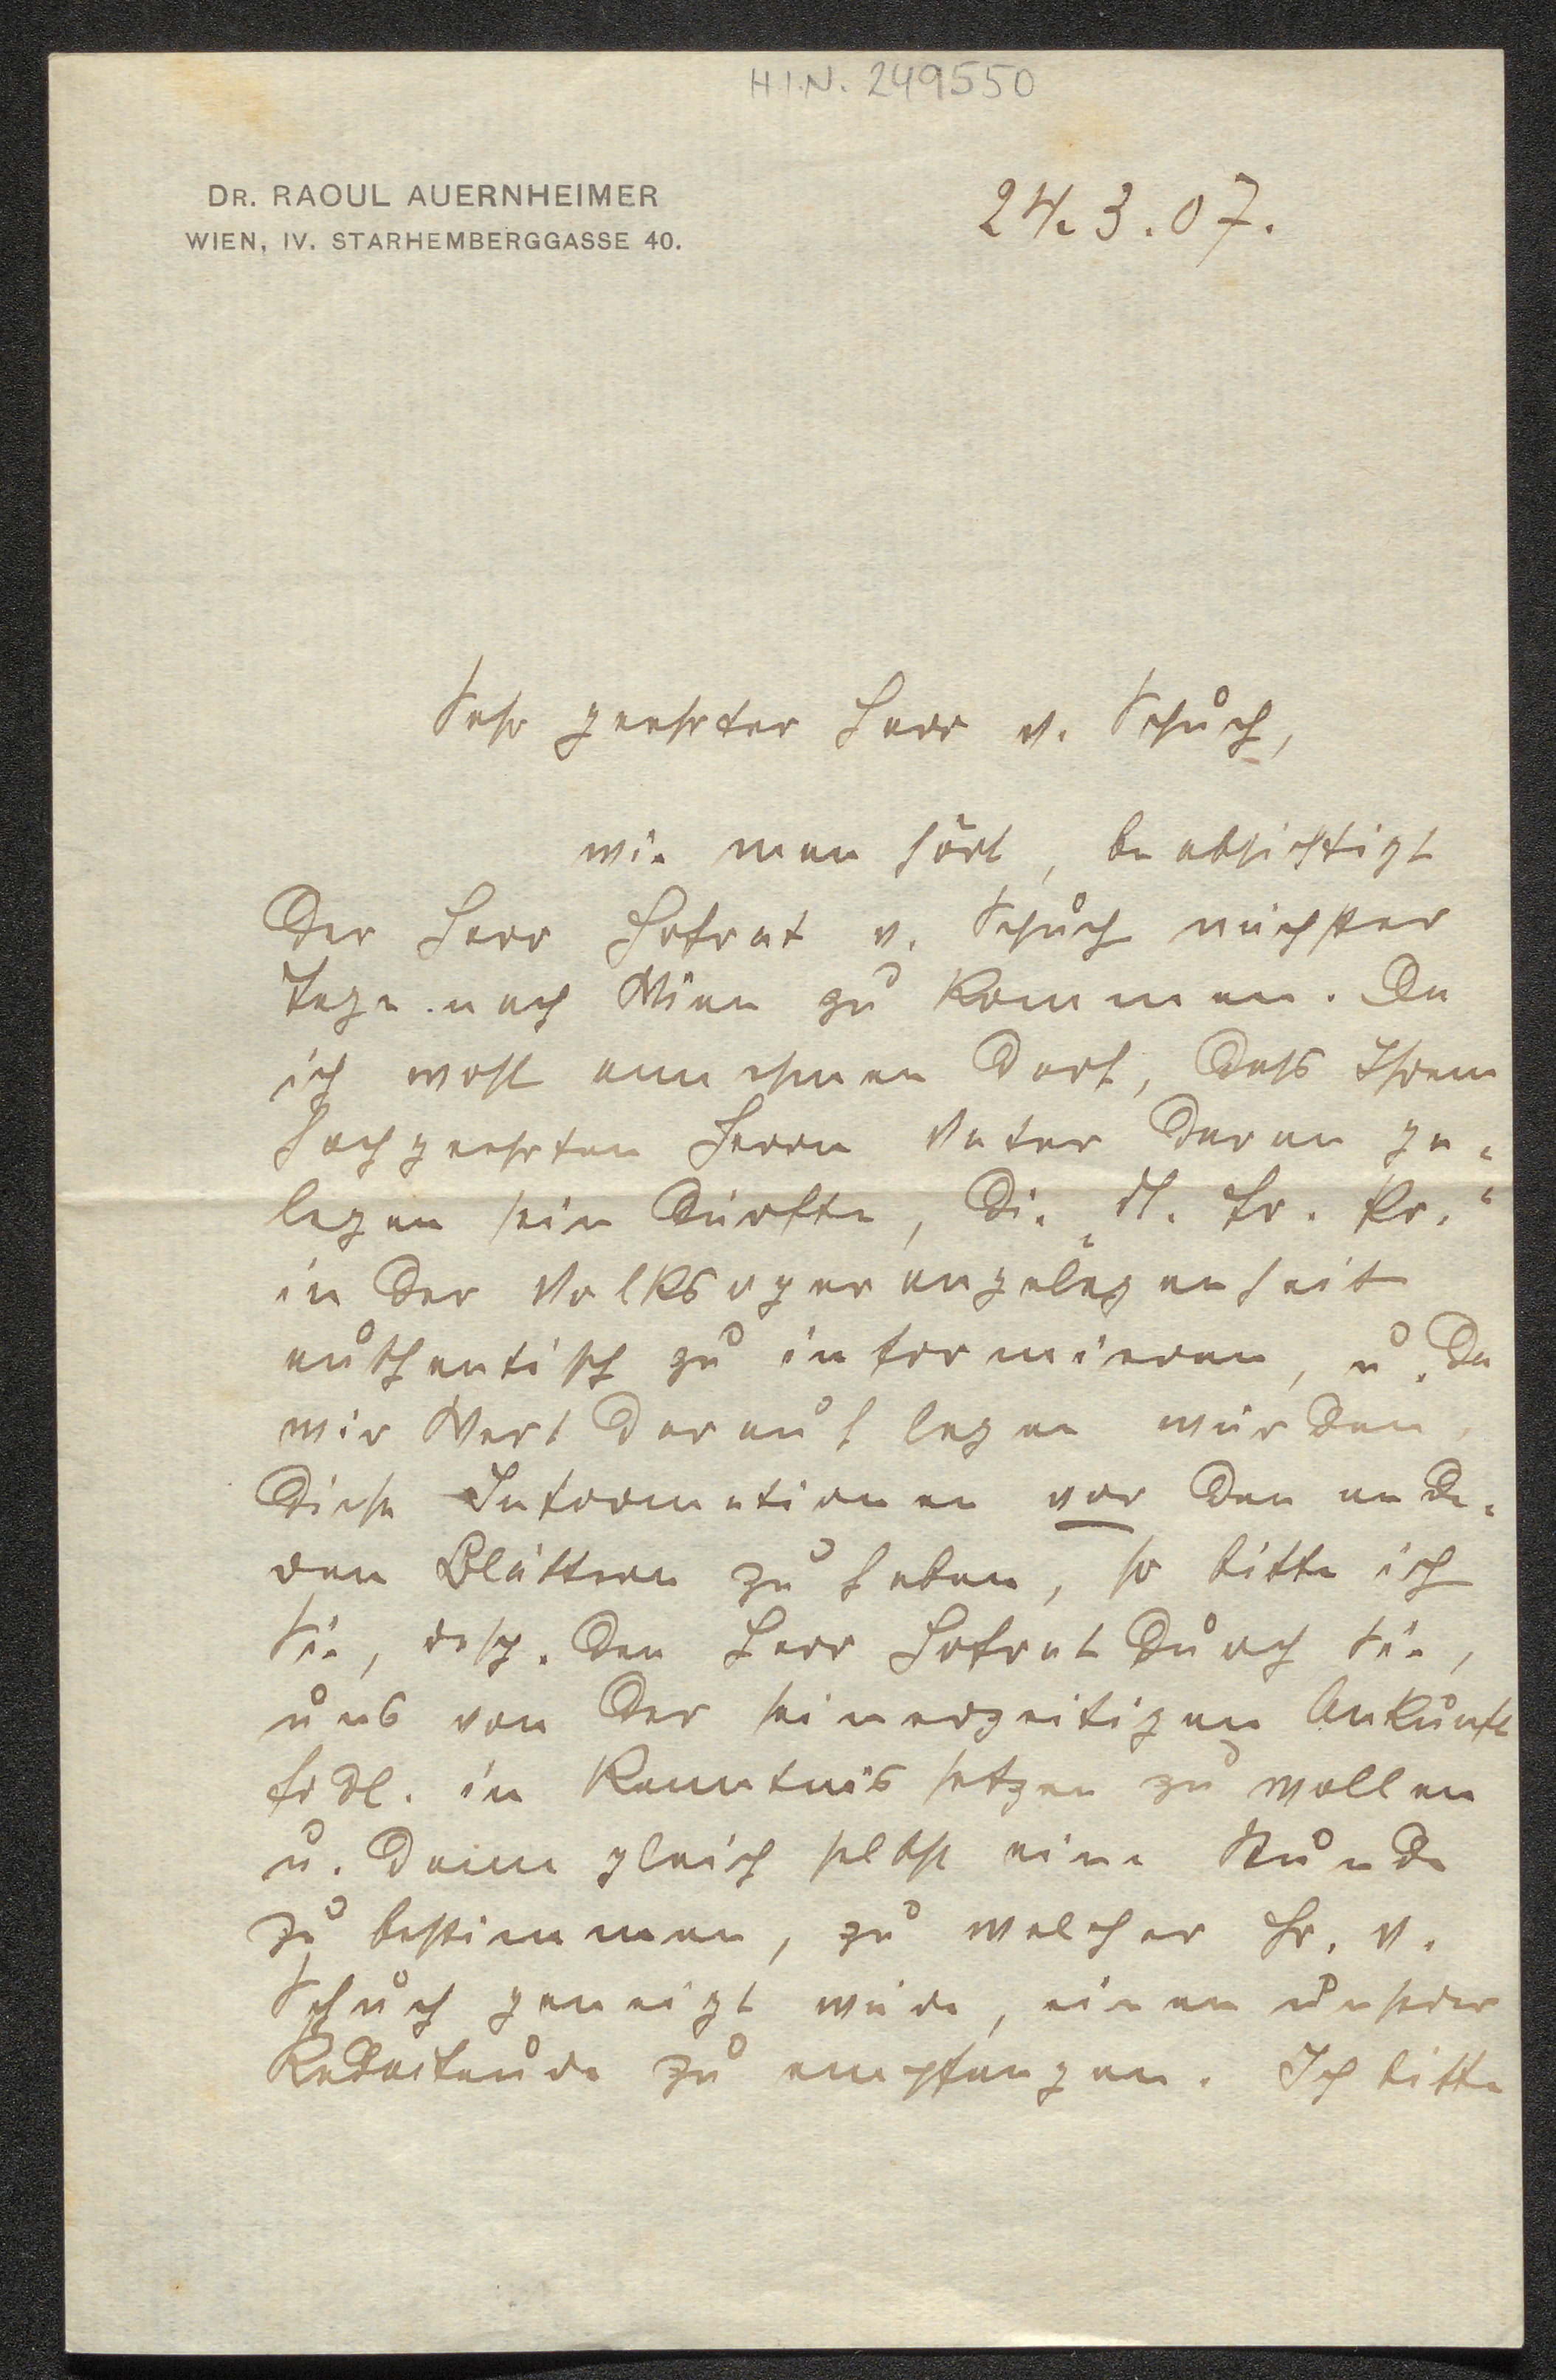 H.I.N. 249550
DR. RAOUL AUERNHEIMER
WIEN, IV. STARHEMBERGGASSE 40.
24. 3. 07.
Sehr geehrter Herr v. Schuch,
wie man hört, beabsichtigt
der Herr Hofrat v. Schuch nächster
Tage nach Wien zu kommen. Da
ich wohl annehmen darf, dass Ihrem
hochgeehrten Herrn Vater daran ge-
legen sein dürfte, die „N. Fr. Pr.“
in der Volksoperangelegenheit
authentisch zu informieren, u. da
wir Wert darauf legen würden,
diese Informationen vor den ande-
ren Blättern zu haben, so bitte ich
Sie, resp. den Herr Hofrat durch Sie,
uns von der seinerzeitigen Ankunft
frdl. in Kenntnis setzen zu wollen
u. dann gleich selbst eine Stunde
zu bestimmen, zu welcher Hr. v.
Schuch geneigt wäre, einen unserer
zu empfangen. Ich bitte